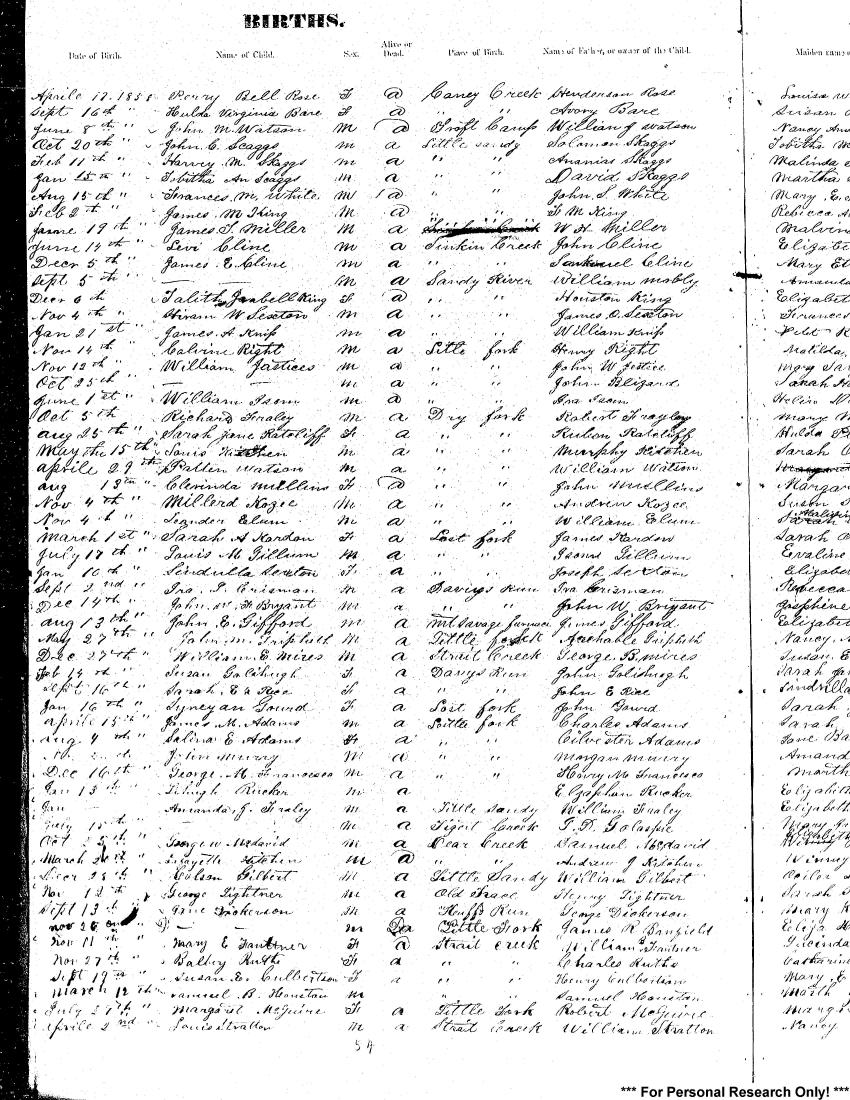 BIRTHS.
Date of Birth. Name of Child. Sex. Alive or Dead. Place of Birth. Name of Father, or owner of the Child. Maiden name o
Aprile 17. 1858 Perry Bell Rose F a Caney Creek Henderson Rose Louisa W
Sept 16th " Hulda Virginia Bare F a " " Avory Bare Susan
June 8th " John M. Watson m a Troft Camp William J Watson Nancy An
Oct 20th " John. C. Scaggs m a Little Sandy Solomon Skaggs Tobitha M
Feb 11th " Harvy. M. Skaggs m a " " Ananias Skaggs Malinda
Jan 15th " Tobitha An Scaggs m a " " David Skaggs Martha
Aug 15th " Frances. M. White m a " " John. S. White Mary. E.
Feb 2th " James. M King m a " " F M King Rebecca A
June 19th " James. T. Miller m a W. H. Miller Malvin
June 14th " Levi Cline m a Sinkin Creek John Cline Elizabe
Decr 5th " James. E. Cline m a " " Cline Mary El
Sept 5th " — m a Sandy River William Mobly Amanda
Decr 6th " Talitha Jsabell King F a " " Houston King Elizabeth
Nov 4th " Hiram W Sexton m a " " James. O. Sexton Frances
Jan 21st " James. A Knip m a " " William Knip
Nov 14th " Calvine Right m a Little fork Henry Right Matilda.
Nov 12th " William Jastices m a " " John W Jestice Mary San
Oct 25th — — m a " " John Blizard Sarah H
June 1st " William Isom m a " " Ira Isom
Oct 5th " Richard Fraley m a Dry fork Robert Frayley Mary
Aug 25th " Sarah Jane Ratcliff F. a " " Ruben Ratcliff Hulda
May the 15th " Louis Kitchen m a " " Murphy Kitchen Sarah
Aprile 29th Patten Watson m a " " William Watson
Aug 13th " Clerinda Mullins F a " " John Mullins Margar
Nov 4th " Millerd Kozee m a " " Andrew Kozee Susan
Nov 4th " Leander Elum m a " " William Elum
March 1st " Sarah A Kordon F. a Lost fork James Kordon Sarah
July 17th " Louis M. Gillum m a " " Isom Gillum Evaline
Jan 10th " Lindulla Sexton F. a " " Joseph Sexton Elizabe
Sept 2nd " Ira. T. Crisman m a Davigs Run Ira Crisman Rebecca
Dec 14th " John. W. F. Bryant m a " " John W. Bryant Josephine
Aug 13th " John. E. Gifford m a Mt Savage furnace James Gifford Elizabet
May 27th " John. M. Tripleth m a Little fork Archable Tripleth Nancy.
Dec 27th " William. E. Mires m a Strait Creek George. B. Mires Susan. E
Feb 14th " Susan Golihugh F a Davys Run John Golihugh Sarah
Sept 16th " Sarah. E. A Rice F a " " John E Rice
Jan 16th " Syneyan Gourd F a Lost fork John Gourd Sarah
Aprile 15th " James. M. Adams m a Little fork Charles Adams Sarah
Aug 4th " Selina E Adams F a " " Cilvester Adams Jane Ba
John Murry m a " " Morgan Murry Amand
Dec 16th " George. M. Francisco m a " " Henry M Francisco Marth
Jan 13th " Rucker m a " " Elzaphan Rucker Elizabeth
Jan Amanda. J. Fraley F a Little Sandy William Fraley Elizabeth
July 15th " — m. a Tigert Creek T. D. Golaspie Mary
Oct 25th " George W McDavid m a Bear Creek Samuel McDavid
March " Lafayette Kitchen m a " " Andrew J Kitchen Winny
Decr 25th " Colson Gilbert m a Little Sandy William Gilbert
Nov 12th " George Tightner m a Old Henry Tightner Sarah
Sept 13th " Dickerson m a Huffs Run George Dickerson Mary
Nov 20 — m Little Fork James R Banfield Eliza
Nov 11th " Mary E F a Strait Creek William Lucinda
Nov 27th " Balby Ruths F a " " Charles Ruths Catharine
Sept 19th " Susan. E. Culbertson F a " " Henry Culbertson Mary. E
March 12th " Samuel B. Houston m " " Samuel Houston Marth
July 27th " Margaret McGuire F a Little Fork Robert McGuire Marg
Aprile 2nd " Louis Stratton m a Strait Creek William Stratton Nancy
54
*** For Personal Research Only! ***